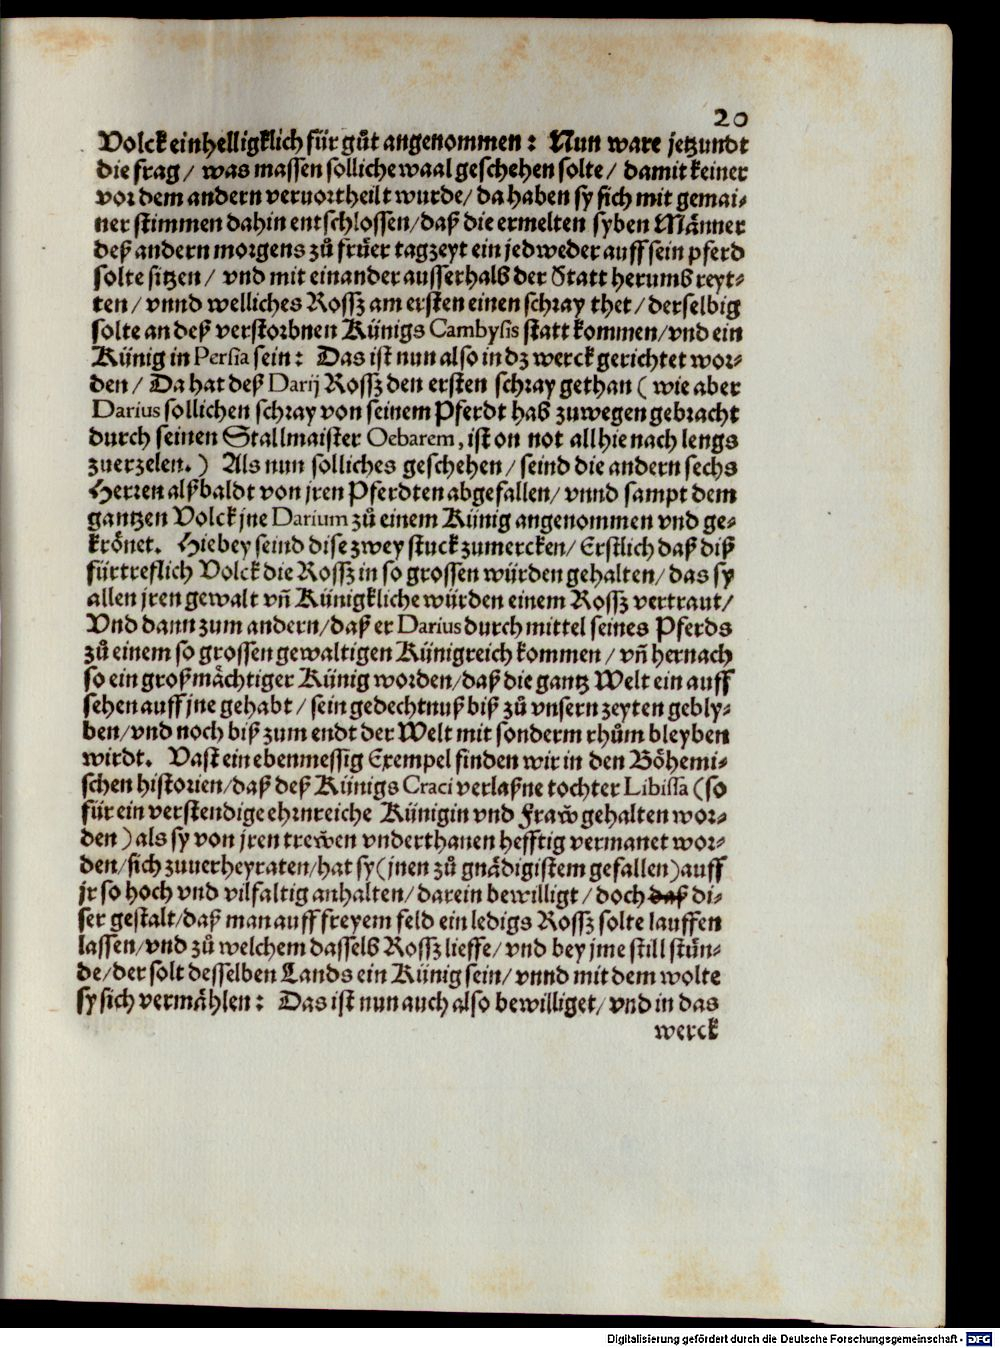 20
Volck einhelligklich für gůt angenommen: Nun ware jetzundt
die frag/ was massen solliche waal geschehen solte/ damit keiner
vor dem andern veruortheilt wurde/ da haben sy sich mit gemai-
ner stimmen dahin entschlossen/ daß die ermelten syben Männer
deß andern morgens zů früer tagzeyt ein jedweder auff sein pferd
solte sitzen/ vnd mit einander ausserhalb der Statt herumb reyt-
ten/ vnnd welliches Rossz am ersten einen schray thet/ derselbig
solte an deß verstorbnen Künigs Cambysis statt kommen/ vnd ein
Künig in Persia sein: Das ist nun also in dz werck gerichtet wor-
den/ Da hat deß Darij Rossz den ersten schray gethan (wie aber
Darius sollichen schray von seinem Pferdt hab zuwegen gebracht
durch seinen Stallmaister Oebarem, ist on not allhie nach lengs
zuerzelen.) Als nun solliches geschehen/ seind die andern sechs
Herren alßbaldt von jren Pferdten abgefallen/ vnnd sampt dem
gantzen Volck jne Darium zů einem Künig angenommen vnd ge-
krönet. Hiebey seind dise zwey stuck zumercken/ Erstlich daß diß
fürtreflich Volck die Rossz in so grossen würden gehalten/ das sy
allen jren gewalt vñ Künigkliche würden einem Rossz vertraut/
Vnd dann zum andern/ daß er Darius durch mittel seines Pferds
zů einem so grossen gewaltigen Künigreich kommen/ vñ hernach
so ein großmächtiger Künig worden/ daß die gantz Welt ein auff
sehen auff jne gehabt/ sein gedechtnuß biß zů vnsern zeyten gebly-
ben/ vnd noch biß zum endt der Welt mit sonderm rhům bleyben
wirdt. Vast ein ebenmessig Exempel finden wir in den Böhemi-
schen historien/ daß deß Künigs Craci verlaßne tochter Libissa (so
für ein verstendige ehrnreiche Künigin vnd Fraw̆ gehalten wor-
den) als sy von jren trew̆en vnderthanen hefftig vermanet wor-
den/ sich zuuerheyraten/ hat sy (jnen zů gnädigistem gefallen) auff
jr so hoch vnd vilfaltig anhalten/ darein bewilligt/ doch daß di-
ser gestalt/ daß man auff freyem feld ein ledigs Rossz solte lauffen
lassen/ vnd zů welchem dasselb Rossz lieffe/ vnd bey jme still stün-
de/ der solt desselben Lands ein Künig sein/ vnnd mit dem wolte
sy sich vermählen: Das ist nun auch also bewilliget/ vnd in das
werck
Digitalisierung gefördert durch die Deutsche Forschungsgemeinschaft - DFG